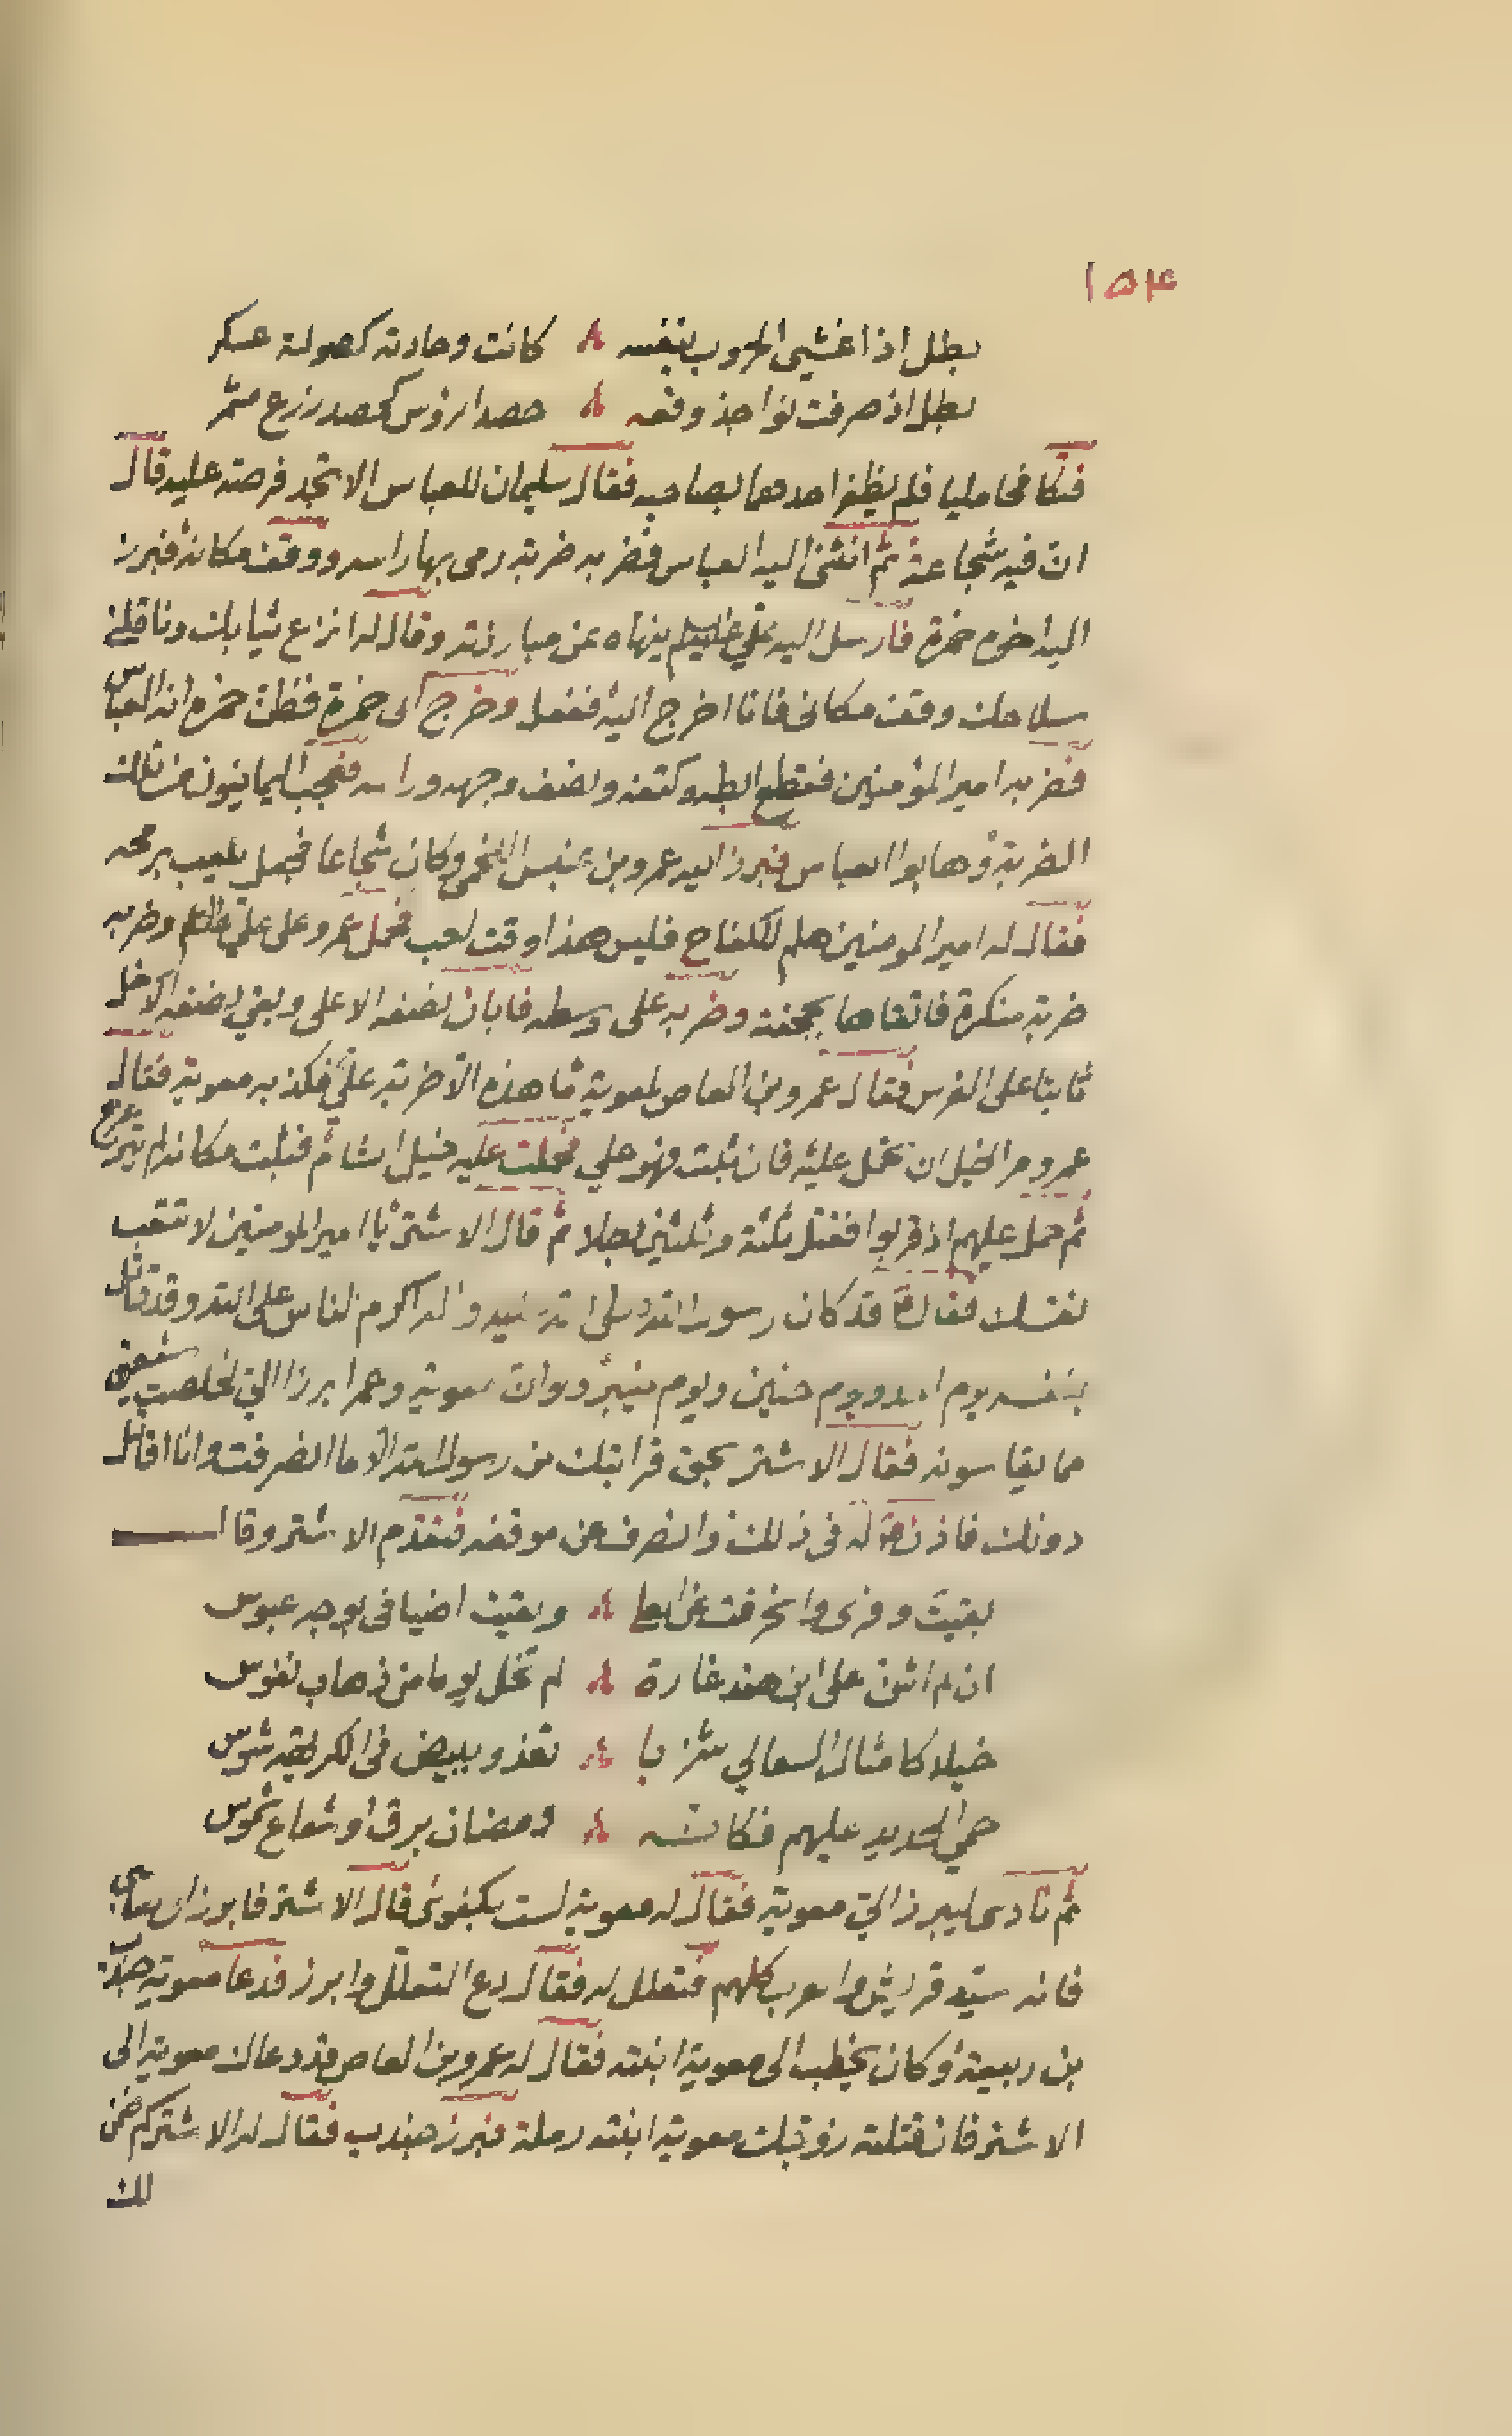 ١٥٤
بطل اذا غشي الحروب بنفسه كانت وحادته كصولة عسكر
بطل اذ صرفت نواجذ وقعه حصد الرؤس كحصد زرع مثمر
فتكافحا مليا فلم يظفر احدهما بصاحبه فقال سليمان للعباس الا تجد فرصة عليه قال
ان فيه شجاعة ثم انثنى اليه العباس فضربه ضربة رمى بها راسه ووقف مكانه فبرز
اليه اخوه حمزة فارسل اليه علي ينهاه عن مبارزته وقال له انزع ثيابك وناولني
سلاحك وقف مكاني فانا اخرج اليه ففعل وخرج الى حمزة فظن حمزه انه العباس
فضربه امير المؤمنين فقطع ابطه وكتفه ونصف وجهه وراسه فعجب اليمانيون من تلك
الضربة وهابوا العباس فبرز اليه عمرو بن عنبس اللخمي وكان شجاعا فجعل يلعب برمحه
فقال له امير المومنين هلم للكفاح فليس هذا وقت لعب فحمل عمرو على علي وضربه
ضربة منكرة فاتقاها بحجفته وضربه على وسطه فابان نصفه الاعلى وبقي نصفه الاخل
ثابتا على الفرس فقال عمرو بن العاص لمعوية ما هذه الا ضربة علي فكذبه معوية فقال
عمرو مر الخيل ان تحمل عليه فان ثبت فهو علي فحملت عليه خيل الشام فثبت مكانه لم يتزعزع
ثم حمل عليهم اذ قربوا فقتل ثلثة وثلثين رجلا ثم قال الاشتر يا امير المومنين لا تتعب
نفسك فقال قد كان رسول الله صلى الله عليه واله اكرم الناس على الله وقد قاتل
بنفسه يوم احد ويوم حنين ويوم خيبر وان معوية وعمرا برزا الي لخلصت شيعتي
مما يقاسونه فقال الاشتر بحق قرابتك من رسول الله الا ما انصرفت وانا اقاتل
دونك فاذن له في ذلك وانصرف عن موقفه فتقدم الاشتر وقال
بقيت وفري وانحرفت عن العلى ولقيت اضيافي بوجه عبوس
ان لم اشن على ابن هند غارة لم تخل يوما من ذهاب نفوس
خيلا كامثال السعالي شزبا تغذو ببيض في الكريهة شوس
حمي الحديد عليهم فكانه ومضان برق او شعاع شموس
ثم نادى ليبرز الي معوية فقال له معوية لست بكفوئى قال الاشتر فابرز الى صاحبي
فانه سيد قريش والعرب كلهم فتعلل له فقال دع التعلل وابرز فدعا معوية جندب
بن ربيعة وكان يخطب الى معوية ابنته فقال له عمرو بن العاص قد دعاك معوية الى
الاشتر فان قتلته زوجك معوية ابنته رملة فبرز جندب فقال له الاشتر كم ضمن
لك